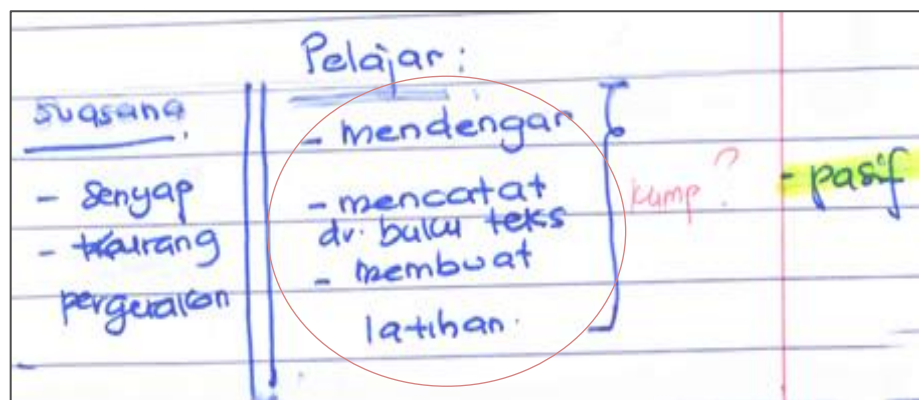 Pelajar:
suasana
- senyap
- kurang
pergerakan
- mendengar
- mencatat
dr. buku teks
- membuat
latihan.
kump?
- pasif